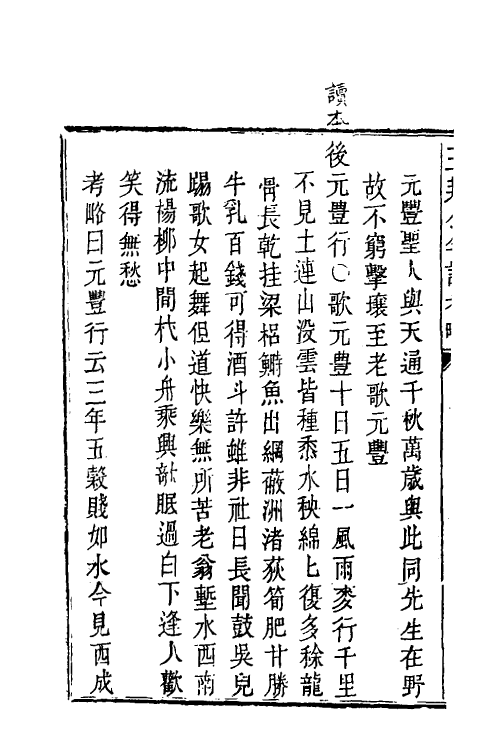 王荊公年譜考略
元豐聖人與天通千秋萬歲與此同先生在野
故不窮擊壤至老歌元豐
讀本
後元豐行〇歌元豐十日五日一風雨麥行千里
不見土連山沒雲皆種黍水秧綿乚復多稌龍
骨長乾挂梁梠鰣魚出網蔽洲渚荻筍肥甘勝
牛乳百錢可得酒斗許雖非社日長聞鼓吳兒
踢歌女起舞但道快樂無所苦老翁塹水西南
流楊柳中間杙小舟乘興欹眠過白下逢人歡
笑得無愁
考略曰元豐行云三年五穀賤如水今見西成